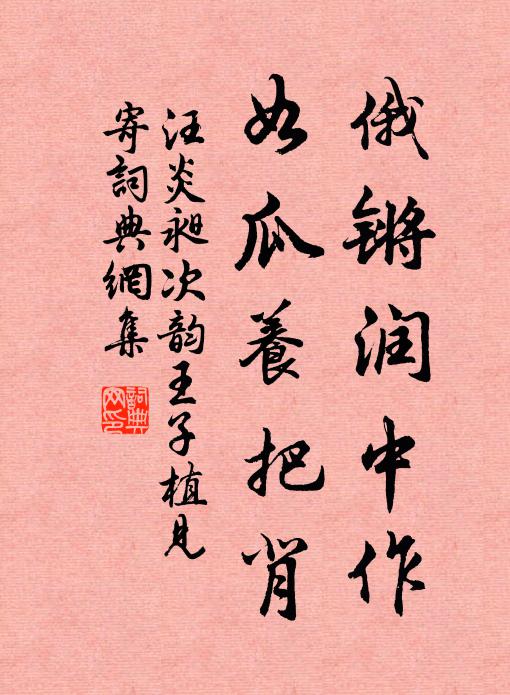 俄锵润中作
如瓜養把肖
汪炎昶次韵王子植見
寄詞典網集
詞典
网印